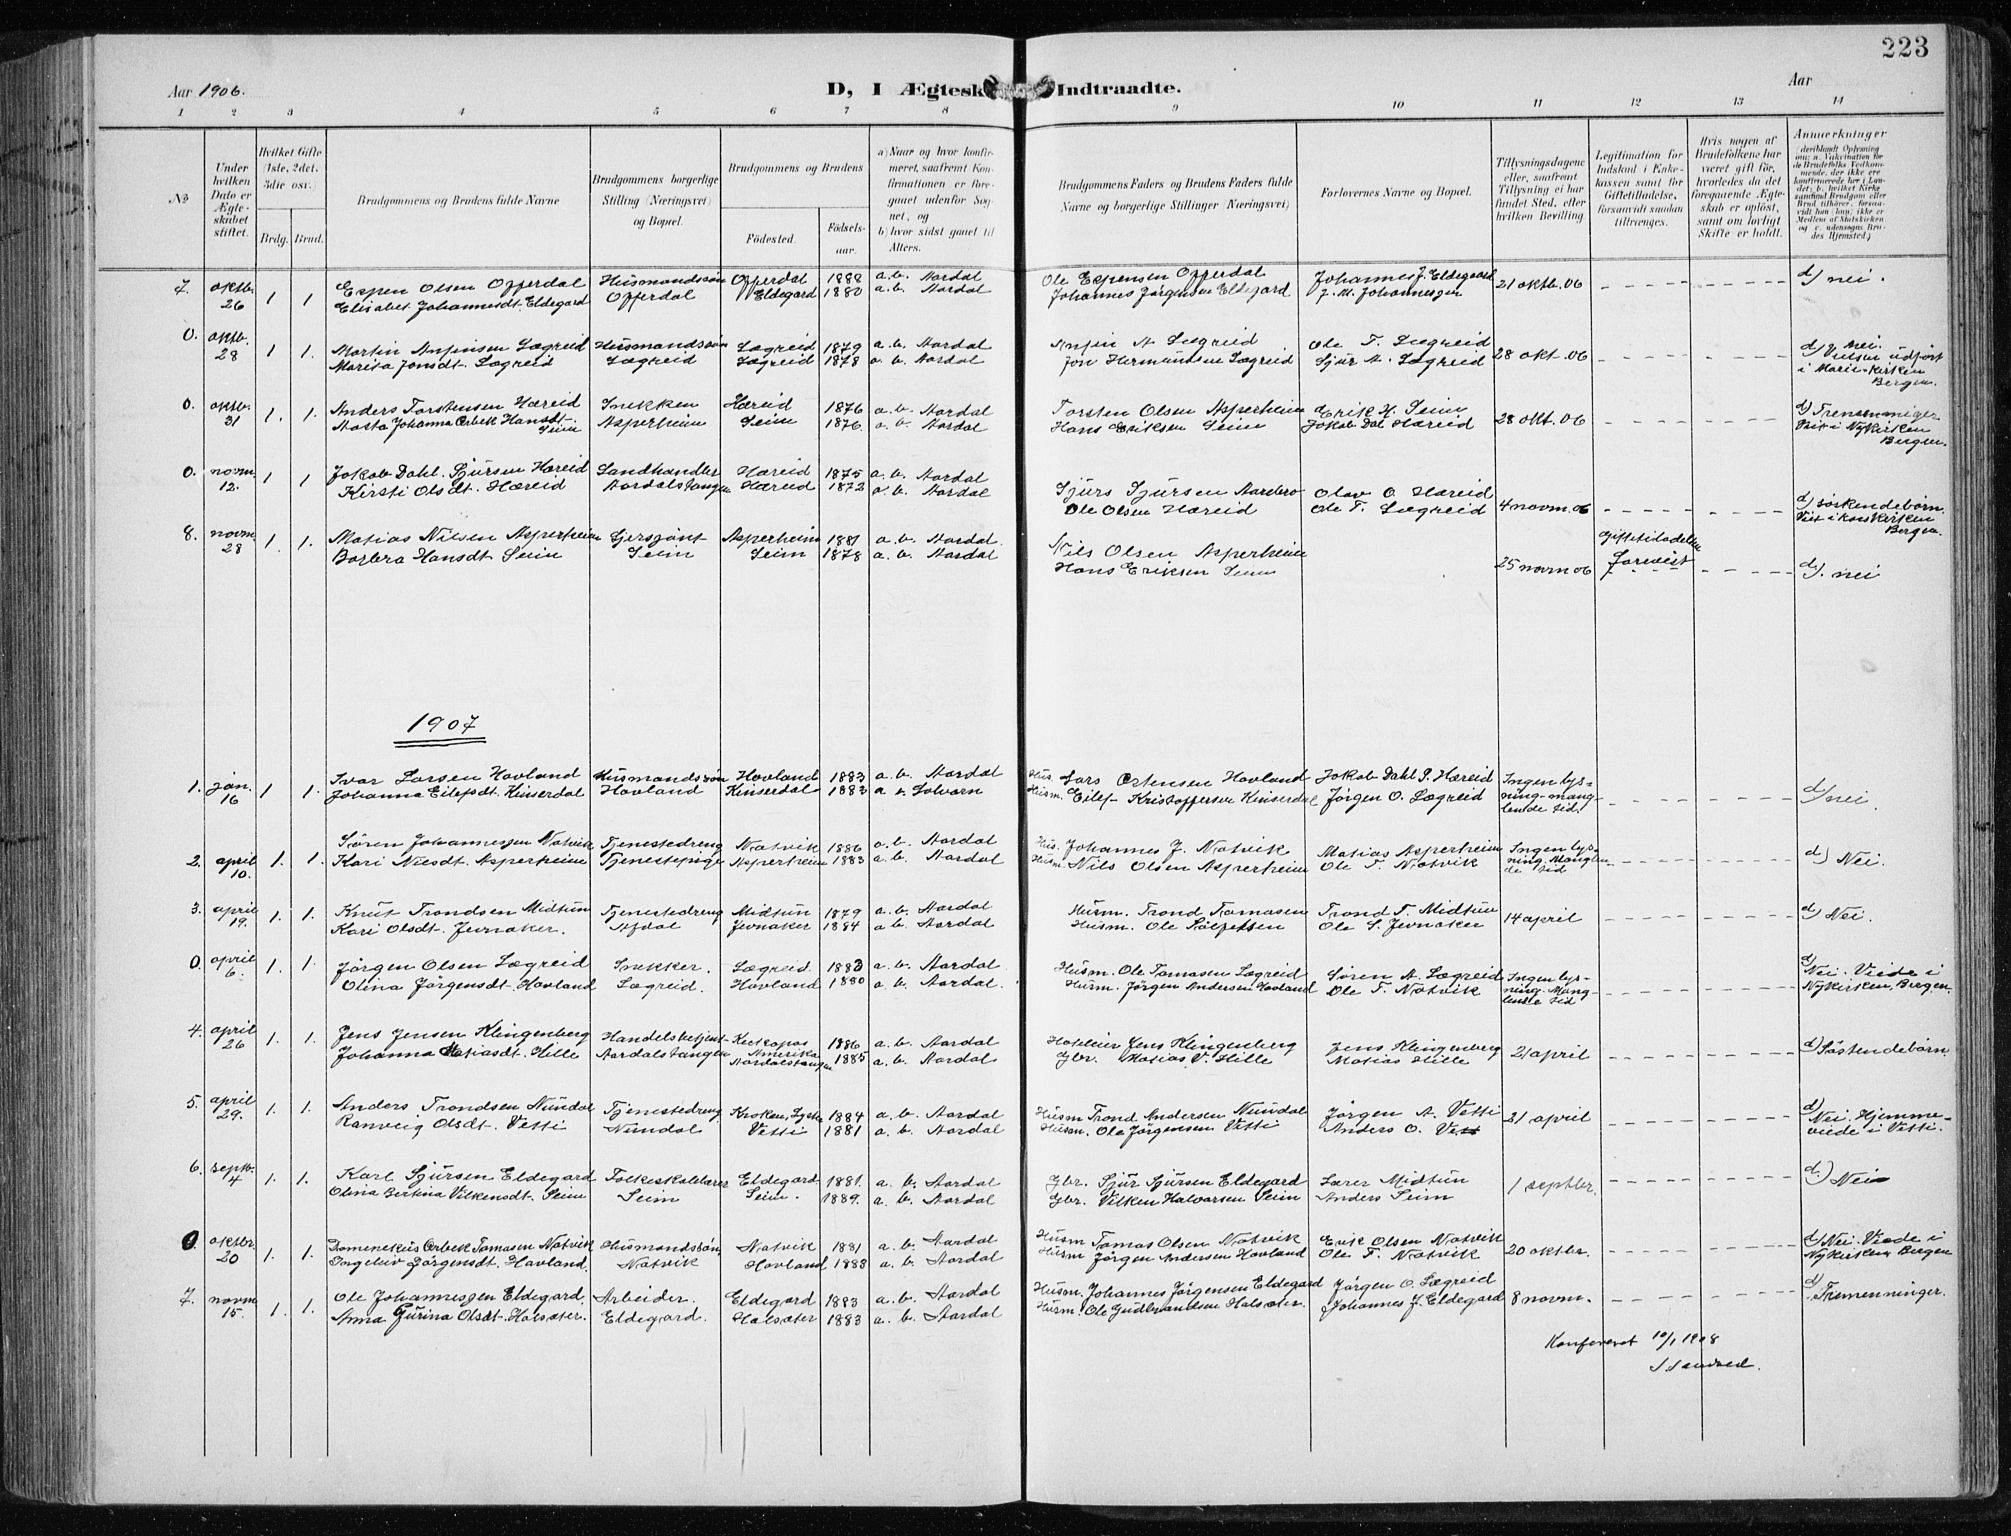 223
Aar 1906.
D, I Ægtesk Indtraadte.
Aar
1 2 3 4 5 6 7 8 9 10 11 12 13 14
No
Under hvilken Dato er Ægteskabet stiftet.
Hvilket Gifte (1ste, 2det, 3die osv.)
Brdg. Brud.
Brudgommens og Brudens fulde Navne
Brudgommens borgerlige Stilling (Næringsvei) og Bopæl.
Brudgommens og Brudens
Fødested. Fødsels-aar.
a) Naar og hvor konfirmeret, saafremt Konfirmationen er foregaaet udenfor Sognet, og
b) hvor sidst gaaet til Alters.
Brudgommens Faders og Brudens Faders fulde Navne og borgerlige Stillinger (Næringsvei)
Forlovernes Navne og Bopæl.
Tillysningsdagene eller, saafremt Tillysning ei har fundet Sted, efter hvilken Bevilling.
Legitimation for Indskud i Enkekassen samt for Giftetilladelse, forsaavidt saadan tiltrænges.
Hvis nogen af Brudefolkene har været gift før, hvorledes da det foregaaende Ægteskab er opløst, samt om lovligt Skifte er holdt.
Anmerkninger
7. oktb. 26 1 1. Espen Olsen Offerdal Husmandssøn Offerdal 1888 a. b. Aardal Ole Espensen Offerdal Johannes J. Eldegaard
Elisabet Johannesdt. Eldegard Offerdal Eldegard 1880 a. b. Aardal Johannes Jørgensen Eldegard J. M. Johannesen 21 oktb. 06 d/ nei.
0. oktb. 28 1 1. Martin Anfinsen Lægreid Husmandssøn Lægreid 1879 a. b. Aardal Anfin A Lægreid Ole T. Lægreid
Marita Jonsdt. Lægreid Lægreid Lægreid 1878 a. b. Aardal Jon Hermundsen Lægreid Sjur A. Lægreid 28 okt. 06 d/ nei. Vielsen udført i Mariekirken Bergen.
0. oktb. 31 1. 1. Anders Torstensen Hæreid Snekken Hæreid 1876 a. b. Aardal Torsten Olsen Asperheim Erik H. Seim
Aasta Johanna Orbek Hansdt. Seim Asperheim Seim 1876. a. b. Aardal Hans Eriksen Seim Jakob Dal Hæreid 28 okt. 06 d/ Tremenninger Viet i Nykirken Bergen.
0. novm. 12. 1 1 Jakob Dahl Sjursen Hæreid Landhandler Hæreid 1875 a. b. Aardal Sjurs Sjursen Aarebro Olav O. Hæreid
Kirsti Olsdt. Hæreid Aardalstangen Hæreid 1872 a. b. Aardal Ole Olsen Hæreid Ole T. Lægreid 4 novm. 06 d/ Søskendebørn. Viet i korskirken Bergen.
8. novm. 28 1. 1. Matias Nilsen Asperheim Sersjant Asperheim 1881 a. b. Aardal. Nils Olsen Asperheim
Barbra Hansdt Seim Seim Seim 1878 a. b. Aardal Hans Eriksen Seim 25 novm 06 giftetiladelse forevist d/. nei
1907
1. jan. 16 1 1. Ivar Larsen Hovland Husmandssøn Hovland 1883 a. b. Aardal Hus. Lars Ortensen Hovland Jakob Dahl S. Hæreid
Johanna Eilefsdt. Kinserdal Hovland Kinserdal 1883 a b Solvorn Husm. Eilef Kristoffersen Kinserdal Jørgen O. Lægreid Ingen lysning manglende tid. d/ nei.
2. april 10. 1. 1. Søren Johannessen Natvik Tjenestedreng Natvik 1886 a. b. Aardal Hus. Johannes J. Natvik Matias Asperheim
Kari Nilsdt. Asperheim Tjenestepige Asperheim 1883 a. b. Aardal Husm. Nils Olsen Asperheim Ole T. Natvik Ingen lysning. Manglende tid d/ Nei.
3. april 19. 1. 1. Knut Trondsen Midtun Tjenestedreng Midtun 1879 a. b. Aardal Husm. Trond Tomasen Trond T. Midtun
Kari Olsdt. Jevnaker. Afdal Jevnaker 1884 a b. Aardal Husm. Ole Sølfestsen Ole S. Jevnaker 14 april d/ Nei.
0. april 6. 1. 1. Jørgen Olsen Lægreid Snekker. Lægreid. 1883 a. b. Aardal Husm. Ole Tomasen Lægreid Søren A. Lægreid
Olina Jørgensdt. Hovland Lægreid. Hovland 1880 a. b. Aardal. Husm. Jørgen Andersen Hovland Ole T. Natvik Ingen lysning. Manglende tid d/ Nei. Viede i Nykirken, Bergen.
4. april 26 1. 1. Jens Jensen Klingenberg Handelsbetjent Amerika 1886 a. b. Aardal Hoteleier Jens Klingenberg Jens Klingenberg
Johanna Matiasdt. Hille Aardalstangen Aardalstangen 1885 a. b. Aardal Gbr. Matias V. Hille Matias Hille 21 april d/ Søskendebørn
5. april 29. 1. 1. Anders Trondsen Nundal Tjenestedreng Kroken, Lyster 1884 a. b. Aardal Husm Trond Andersen Nundal Jørgen A. Vetti
Ranveig Olsdt. Vetti Nundal Vetti 1881 a. b. Aardal Husm. Ole Jørgensen Vetti Anders O. Vetti 21 april d/ Nei. Hjemmeviede i Vetti.
6. septb. 4 1. 1. Karl Sjursen Eldegard Folkeskolelærer Eldegard 1881. a. b. Aardal Gbr. Sjur Sjursen Eldegard Lærer Midtun
Olina Bertina Vilkensdt. Seim Seim Seim. 1889. a. b. Aardal Gbr. Vilken Halvorsen Seim Anders Seim 1 septbr. d/ Nei
0. oktbr. 20 1. 1. Domenekus Orbek Tomasen Natvik Husmandssøn, Natvik 1881 a. b. Aardal Husm Tomas Olsen Natvik Erik Olsen Natvik
Ingeleiv Jørgensdt. Hovland. Natvik Hovland 1888 a. b. Aardal Husm Jørgen Andersen Hovland Ole T. Natvik 20 oktbr. d/ Nei. Viede i Nykirken, Bergen
7. novm 15. 1. 1. Ole Johannessen Eldegard. Arbeider. Eldegard 1883 a. b. Aardal Husm. Johannes Jørgensen Eldegard Jørgen O. Lægreid
Anna Gurina Olsdt. Halsæter. Eldegard. Halsæter 1883 a. b. Aardal Husm. Ole Gudbrandsen Halsæter. Johannes J. Eldegard 8 novm. d/ Tremenninger.
Konfereret 10/1 1908